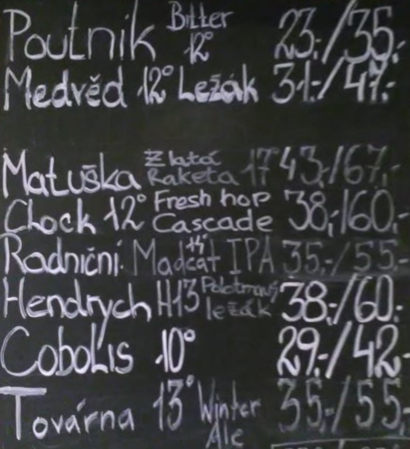 Poutník Bitter 12° 23,-/35,-
Medvěd 12° Ležák 31,-/47,-
Matuška Zlatá Raketa 17° 43,-/67,-
Clock 12° Fresh hop Cascade 38,-/60,-
Radniční Madcat 14° IPA 35,-/55,-
Hendrych H13 Polotmavý ležák 38,-/60,-
Cobolis 10° 29,-/42,-
Továrna 13° Winter Ale 35,-/55,-